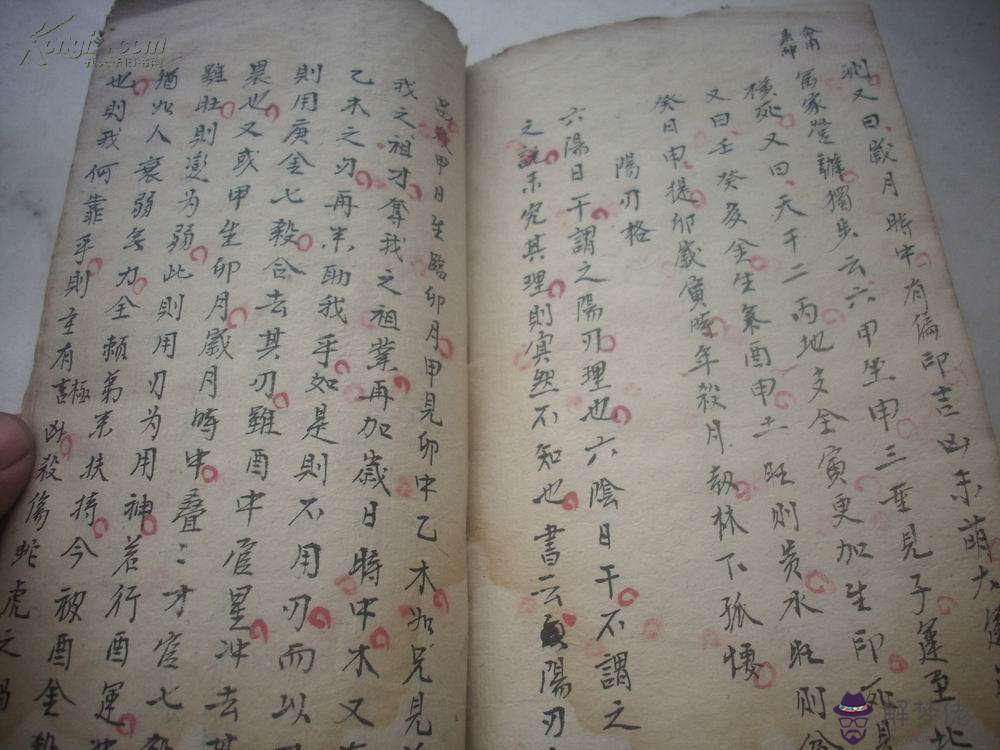 测又曰歲月時中有偏印吉凶未萌大運
富家營辦獨步云六甲坐申三重見子運至北
橫死又曰天干二丙地支全寅更加生印死
又曰壬癸亥金生氣酉申土旺則贵水旺則
癸日申提卯歲寅時年殺月劫林下孤悽
陽刃格
六陽日干謂之陽刃理也六陰日干不謂之
之説未究其理則寘然不知也書云陽刃
甲日生臨卯月甲見卯中乙木如兄見
我之祖才奪我之祖業再加歲日時中木又
乙木之刃再来助我乎如是則不用刃而以
則用庚金七殺合去其刃雖酉中官星冲去
畏也又或甲生卯月歲月時中叠:才官七
雖旺則澎为弱此則用刃为用神若行酉運
猶如人衰弱無力全頼弟来扶持今被酉金
也則我何靠乎則主有極凶殺傷蛇虎之
Kongfz.com
解梦佬